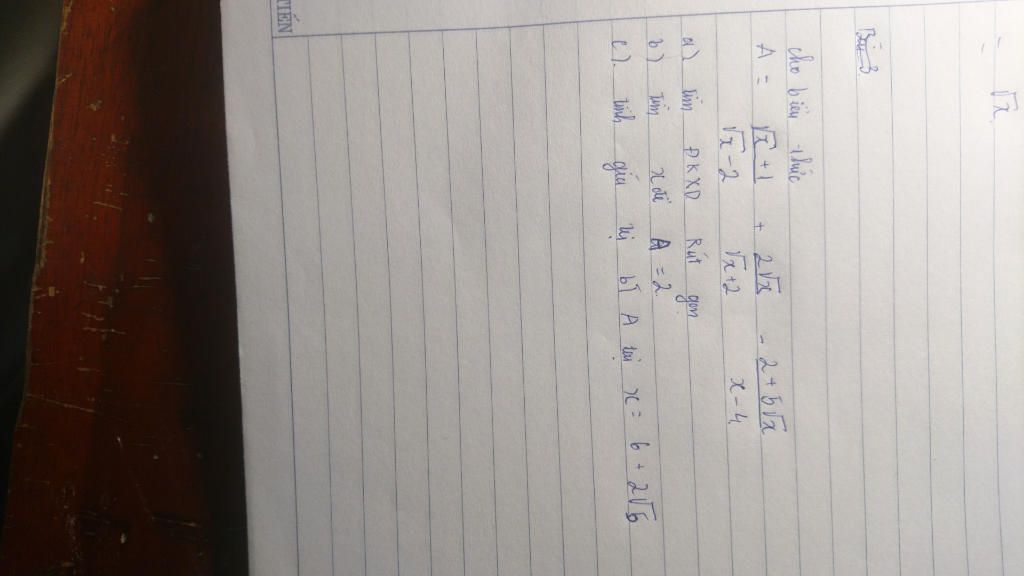 √x
Bài 3
cho biểu thức
A = (√x + 1)/(√x - 2) + 2√x/(√x + 2) - (2 + 5√x)/(x - 4)
a) tìm ĐKXD Rút gọn
b) tìm x để A = 2
c). tính giá trị bt A tại x = 6 + 2√5
TIẾN